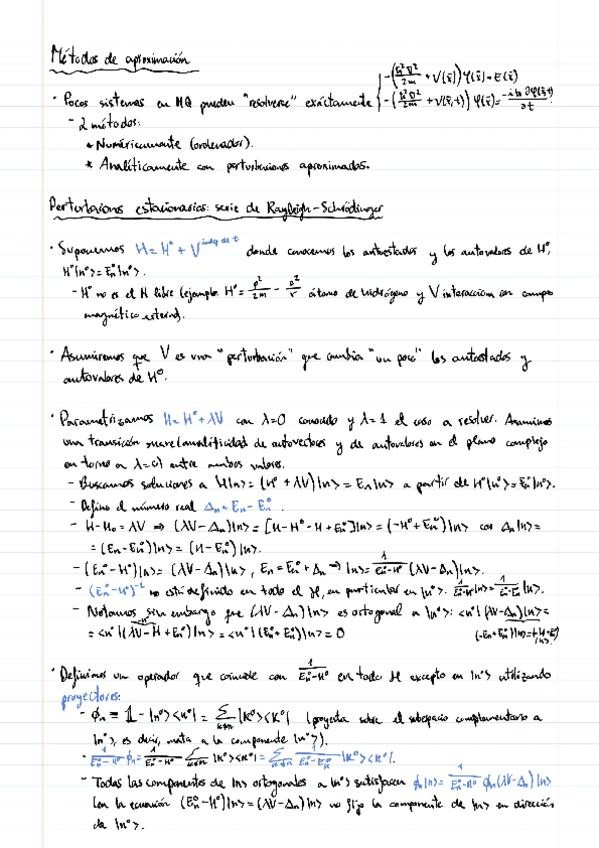 Métodos de aproximación
· Pocos sistemas en MQ pueden "resolverse" exactamente { -(ħ²∇²/2m + V(x̄))Ψ(x̄) = E(x̄)
-(ħ²∇²/2m + V(x̄,t))Ψ(x̄) = -iħ ∂Ψ(x̄,t)/∂t
- 2 métodos:
* Numéricamente (ordenador).
* Analíticamente con perturbaciones aproximadas.
Perturbaciones estacionarias: serie de Rayleigh-Schrödinger
· Suponemos H = H° + V^{indep de t} donde conocemos los autoestados y los autovalores de H°,
H°|n°> = En°|n°>.
- H° no es el H libre (ejemplo H° = p²/2m - e²/r átomo de hidrógeno y V interacción con campo
magnético externo).
· Asumiremos que V es una "perturbación" que cambia "un poco" los autoestados y
autovalores de H°.
· Parametrizamos H = H° + λV con λ=0 conocido y λ=1 el caso a resolver. Asumimos
una transición suave (analiticidad de autovectores y de autovalores en el plano complejo
en torno a λ=0) entre ambos valores.
- Buscamos soluciones a H|n> = (H° + λV)|n> = En|n> a partir de H°|n°> = En°|n°>.
- Defino el número real Δn = En - En°.
- H - H₀ = λV ⇒ (λV - Δn)|n> = [H - H° - H + En°]|n> = (-H° + En°)|n> con Δn|n> =
= (En - En°)|n> = (H - En°)|n>.
- (En° - H°)|n> = (λV - Δn)|n>, En = En° + Δn ⇒ |n> = 1/(En° - H°) (λV - Δn)|n>.
- (En° - H°)⁻¹ no está definido en todo el H, en particular en |n°>. 1/(En° - H°)|n°> = 1/(En° - En°)|n°>.
- Notamos sin embargo que (λV - Δn)|n> es ortogonal a |n°>: <n°|(λV - Δn)|n> =
= <n°|(λV - H + En°)|n> = <n°|(En° - En°)|n> = 0
· Definimos un operador que coincide con 1/(En° - H°) en todo H excepto en |n°> utilizando
proyectores:
- ϕn ≡ 𝟙 - |n°><n°| = Σ_{k≠n} |k°><k°| (proyecta sobre el subespacio complementario a
|n°>, es decir, mata a la componente |n°>).
- 1/(En° - H°) ϕn = 1/(En° - H°) Σ_{k≠n} |k°><k°| = Σ_{k≠n} 1/(En° - Ek°) |k°><k°|.
- Todas las componentes de |n> ortogonales a |n°> satisfacen ϕn|n> = 1/(En° - H°) ϕn(λV - Δn)|n>
(en la ecuación (En° - H°)|n> = (λV - Δn)|n> no fijo la componente de |n> en dirección
de |n°>.